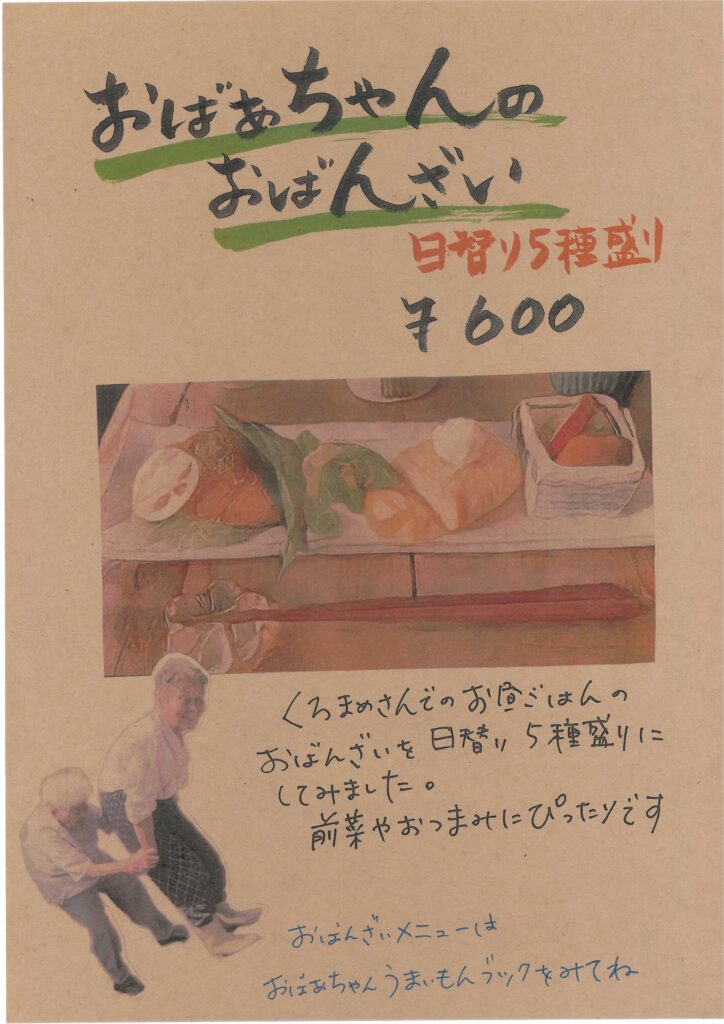 おばぁちゃんの
おばんざい
日替り5種盛り
¥600
くろまめさんでのお昼ごはんの
おばんざいを日替り5種盛りに
してみました。
前菜やおつまみにぴったりです
おばんざいメニューは
おばあちゃんうまいもんブックをみてね